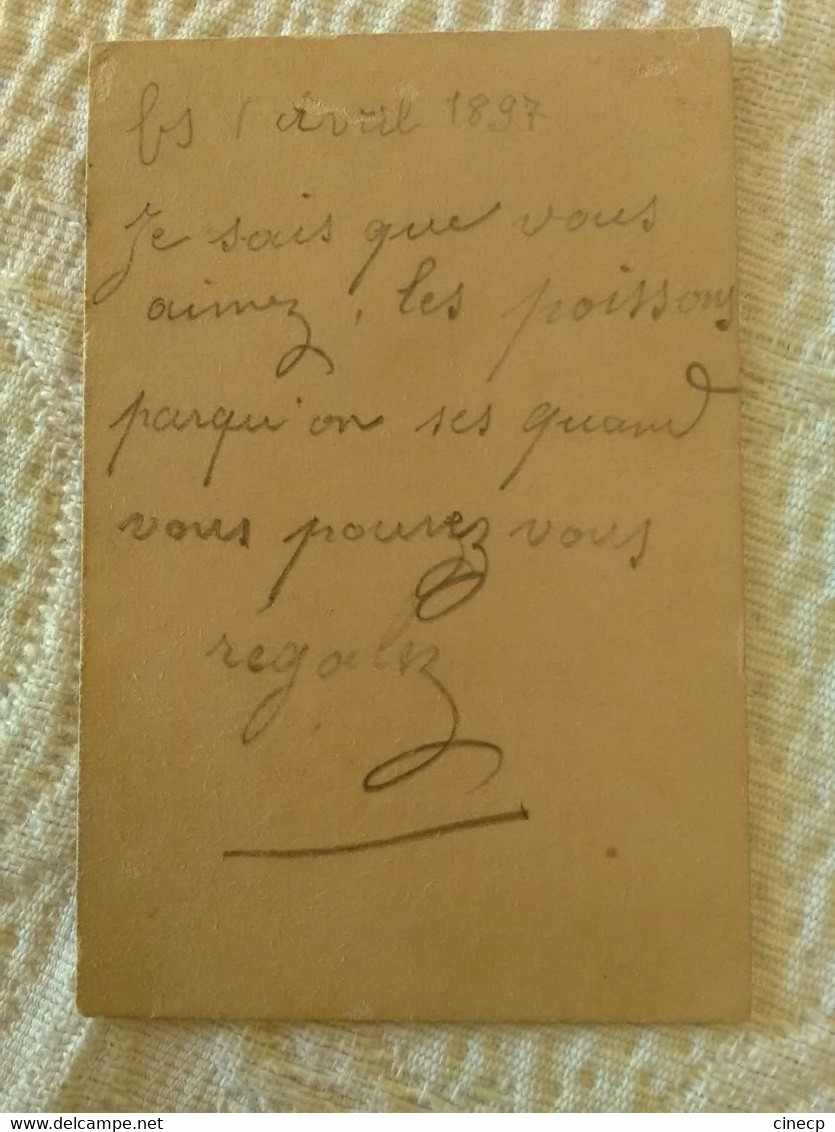 1 Avril 1897
Je sais que vous
aimez, les poissons
parqu'on ses quand
vous pouvez vous
régalez
delcampe.net
cinecp